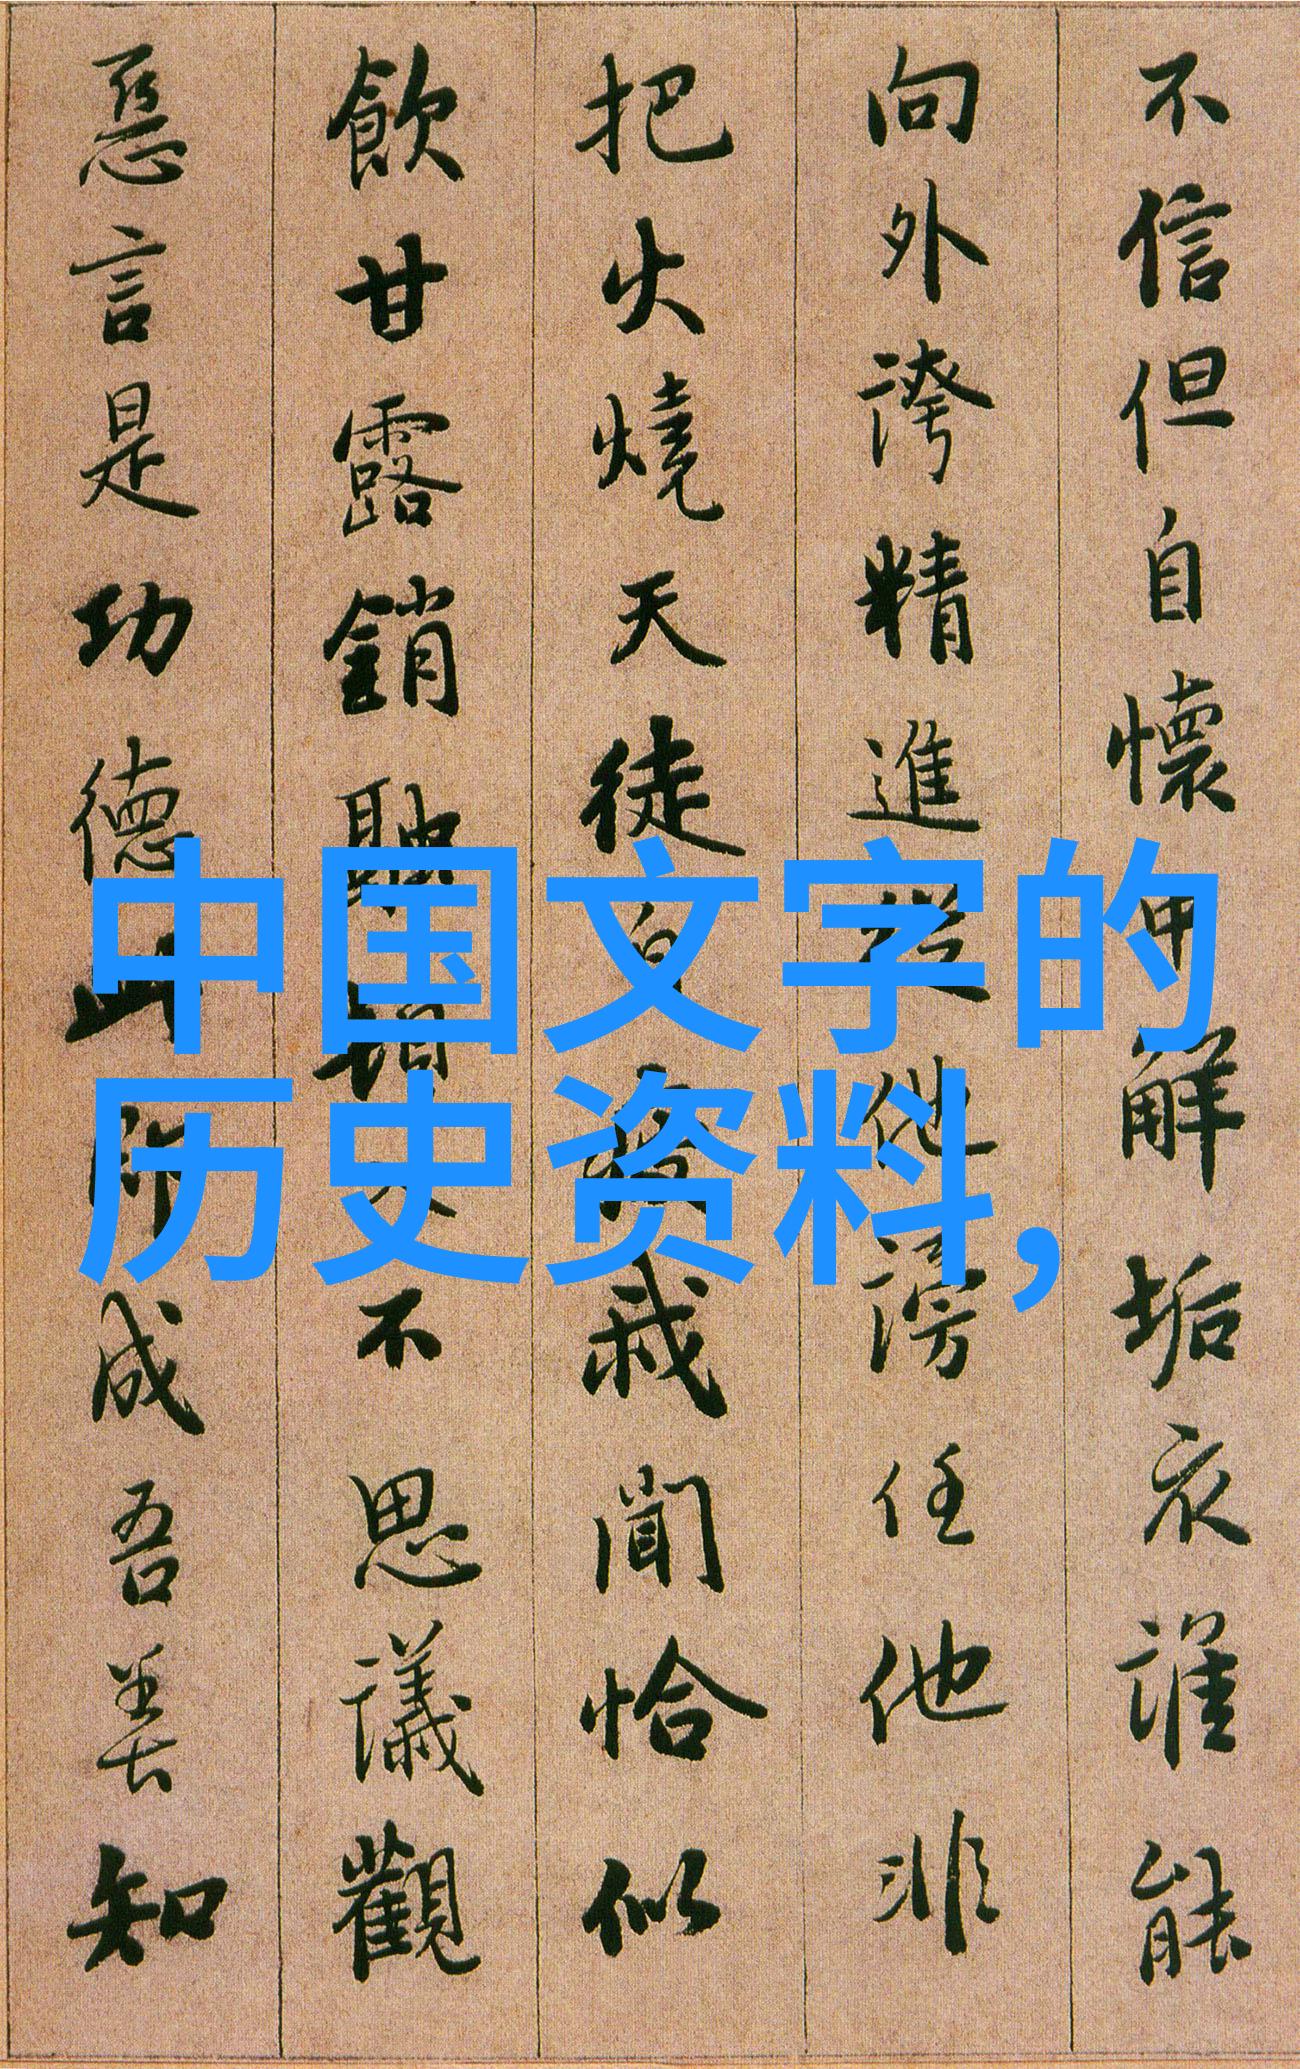 不信但自懷中解垢衣誰能
向外誇精進從他謗任他非
把火燒天徒自我聞恰似
飲甘露銷融頓入不思議觀
惡言是功德此成吾善知
中国文字的
历史资料,